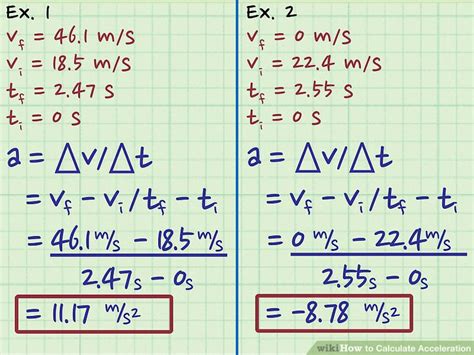 Ex. 1
v_f = 46.1 m/s
v_i = 18.5 m/s
t_f = 2.47 s
t_i = 0 s
a = Δv/Δt
= v_f - v_i / t_f - t_i
= 46.1 m/s - 18.5 m/s
2.47s - 0s
= 11.17 m/s²
Ex. 2
v_f = 0 m/s
v_i = 22.4 m/s
t_f = 2.55 s
t_i = 0 s
a = Δv/Δt
= v_f - v_i / t_f - t_i
= 0 m/s - 22.4 m/s
2.55s - 0s
= -8.78 m/s²
wikiHow to Calculate Acceleration